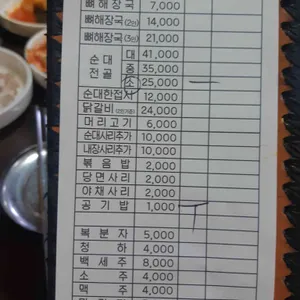 뼈해장국 7,000
뼈해장국(2인) 14,000
뼈해장국(3인) 21,000
순대전골 대 41,000
중 35,000
소 25,000
순대한접시 12,000
닭갈비 24,000
머리고기 6,000
순대사리추가 10,000
내장사리추가 10,000
볶음밥 2,000
당면사리 2,000
야채사리 2,000
공기밥 1,000
복분자 5,000
청하 4,000
백세주 8,000
소주 4,000
맥주 4,000